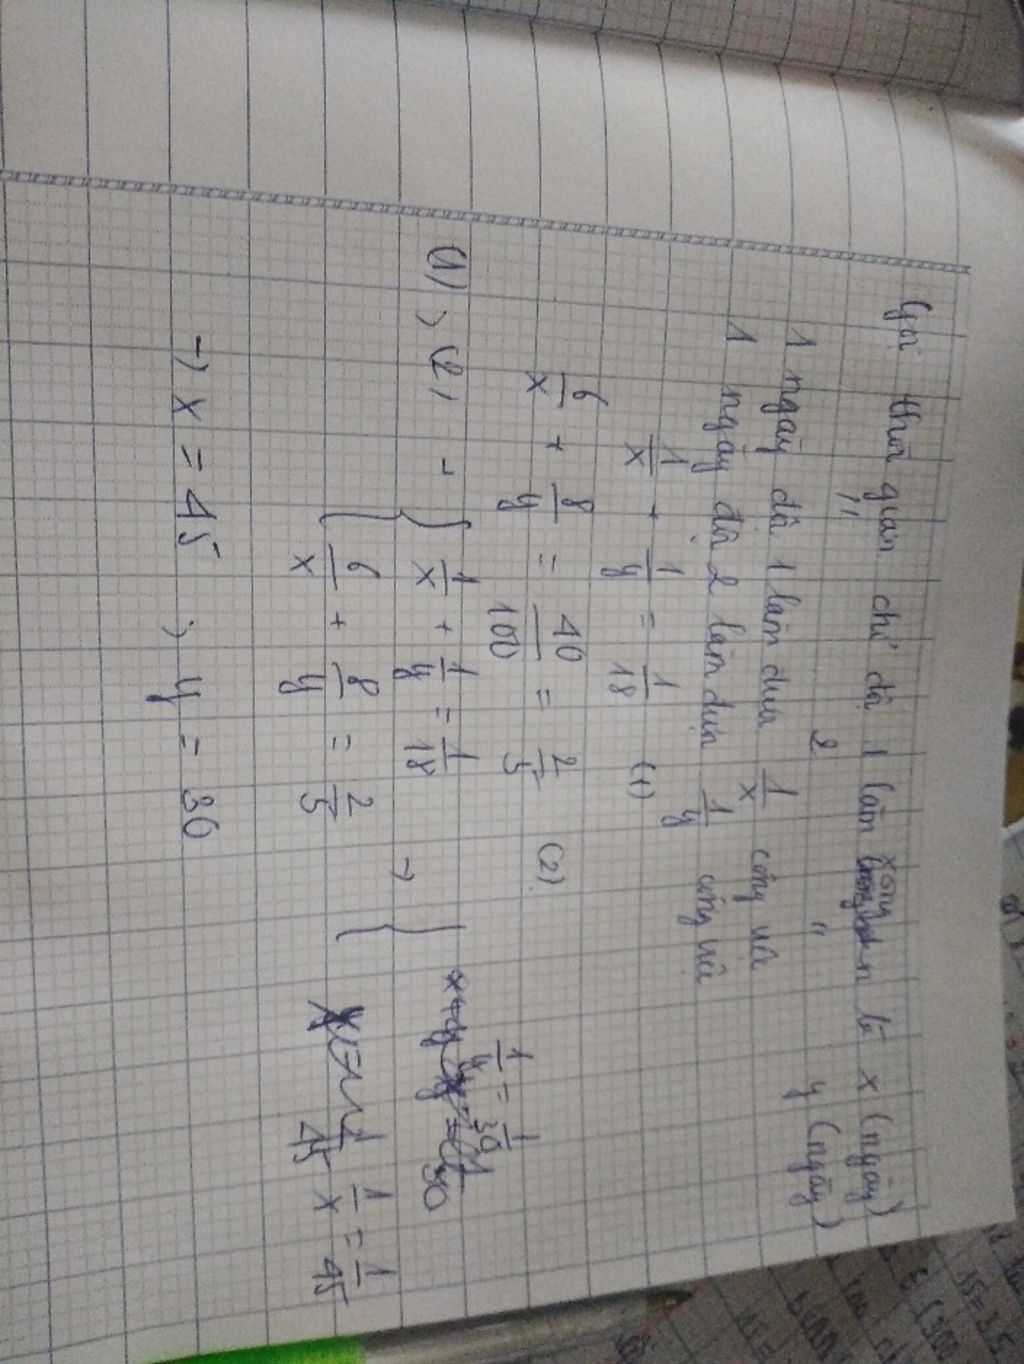 Gọi thời gian chỉ đội 1 làm xong là x (ngày)
" 2 " y (ngày)
1 ngày đội 1 làm được 1/x công việc
1 ngày đội 2 làm được 1/y công việc
1/x + 1/y = 1/18 (1)
6/x + 8/y = 40/100 = 2/5 (2)
(1), (2) → { 1/x + 1/y = 1/18 → { 1/y = 1/30
6/x + 8/y = 2/5 1/x = 1/45
→ x = 45, y = 30